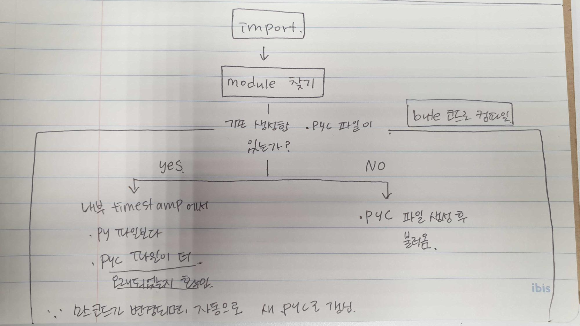 import.
module 찾기
byte 코드로 컴파일
기존 생성한 .pyc 파일이
있는가?
yes
NO
내부 timestamp에서
.py 파일보다
.pyc 파일이 더
오래되었는지 확인함.
.pyc 파일 생성 후
불러옴.
∵ 만약 코드가 변경되면, 자동으로 새 .pyc로 갱신.
ibis